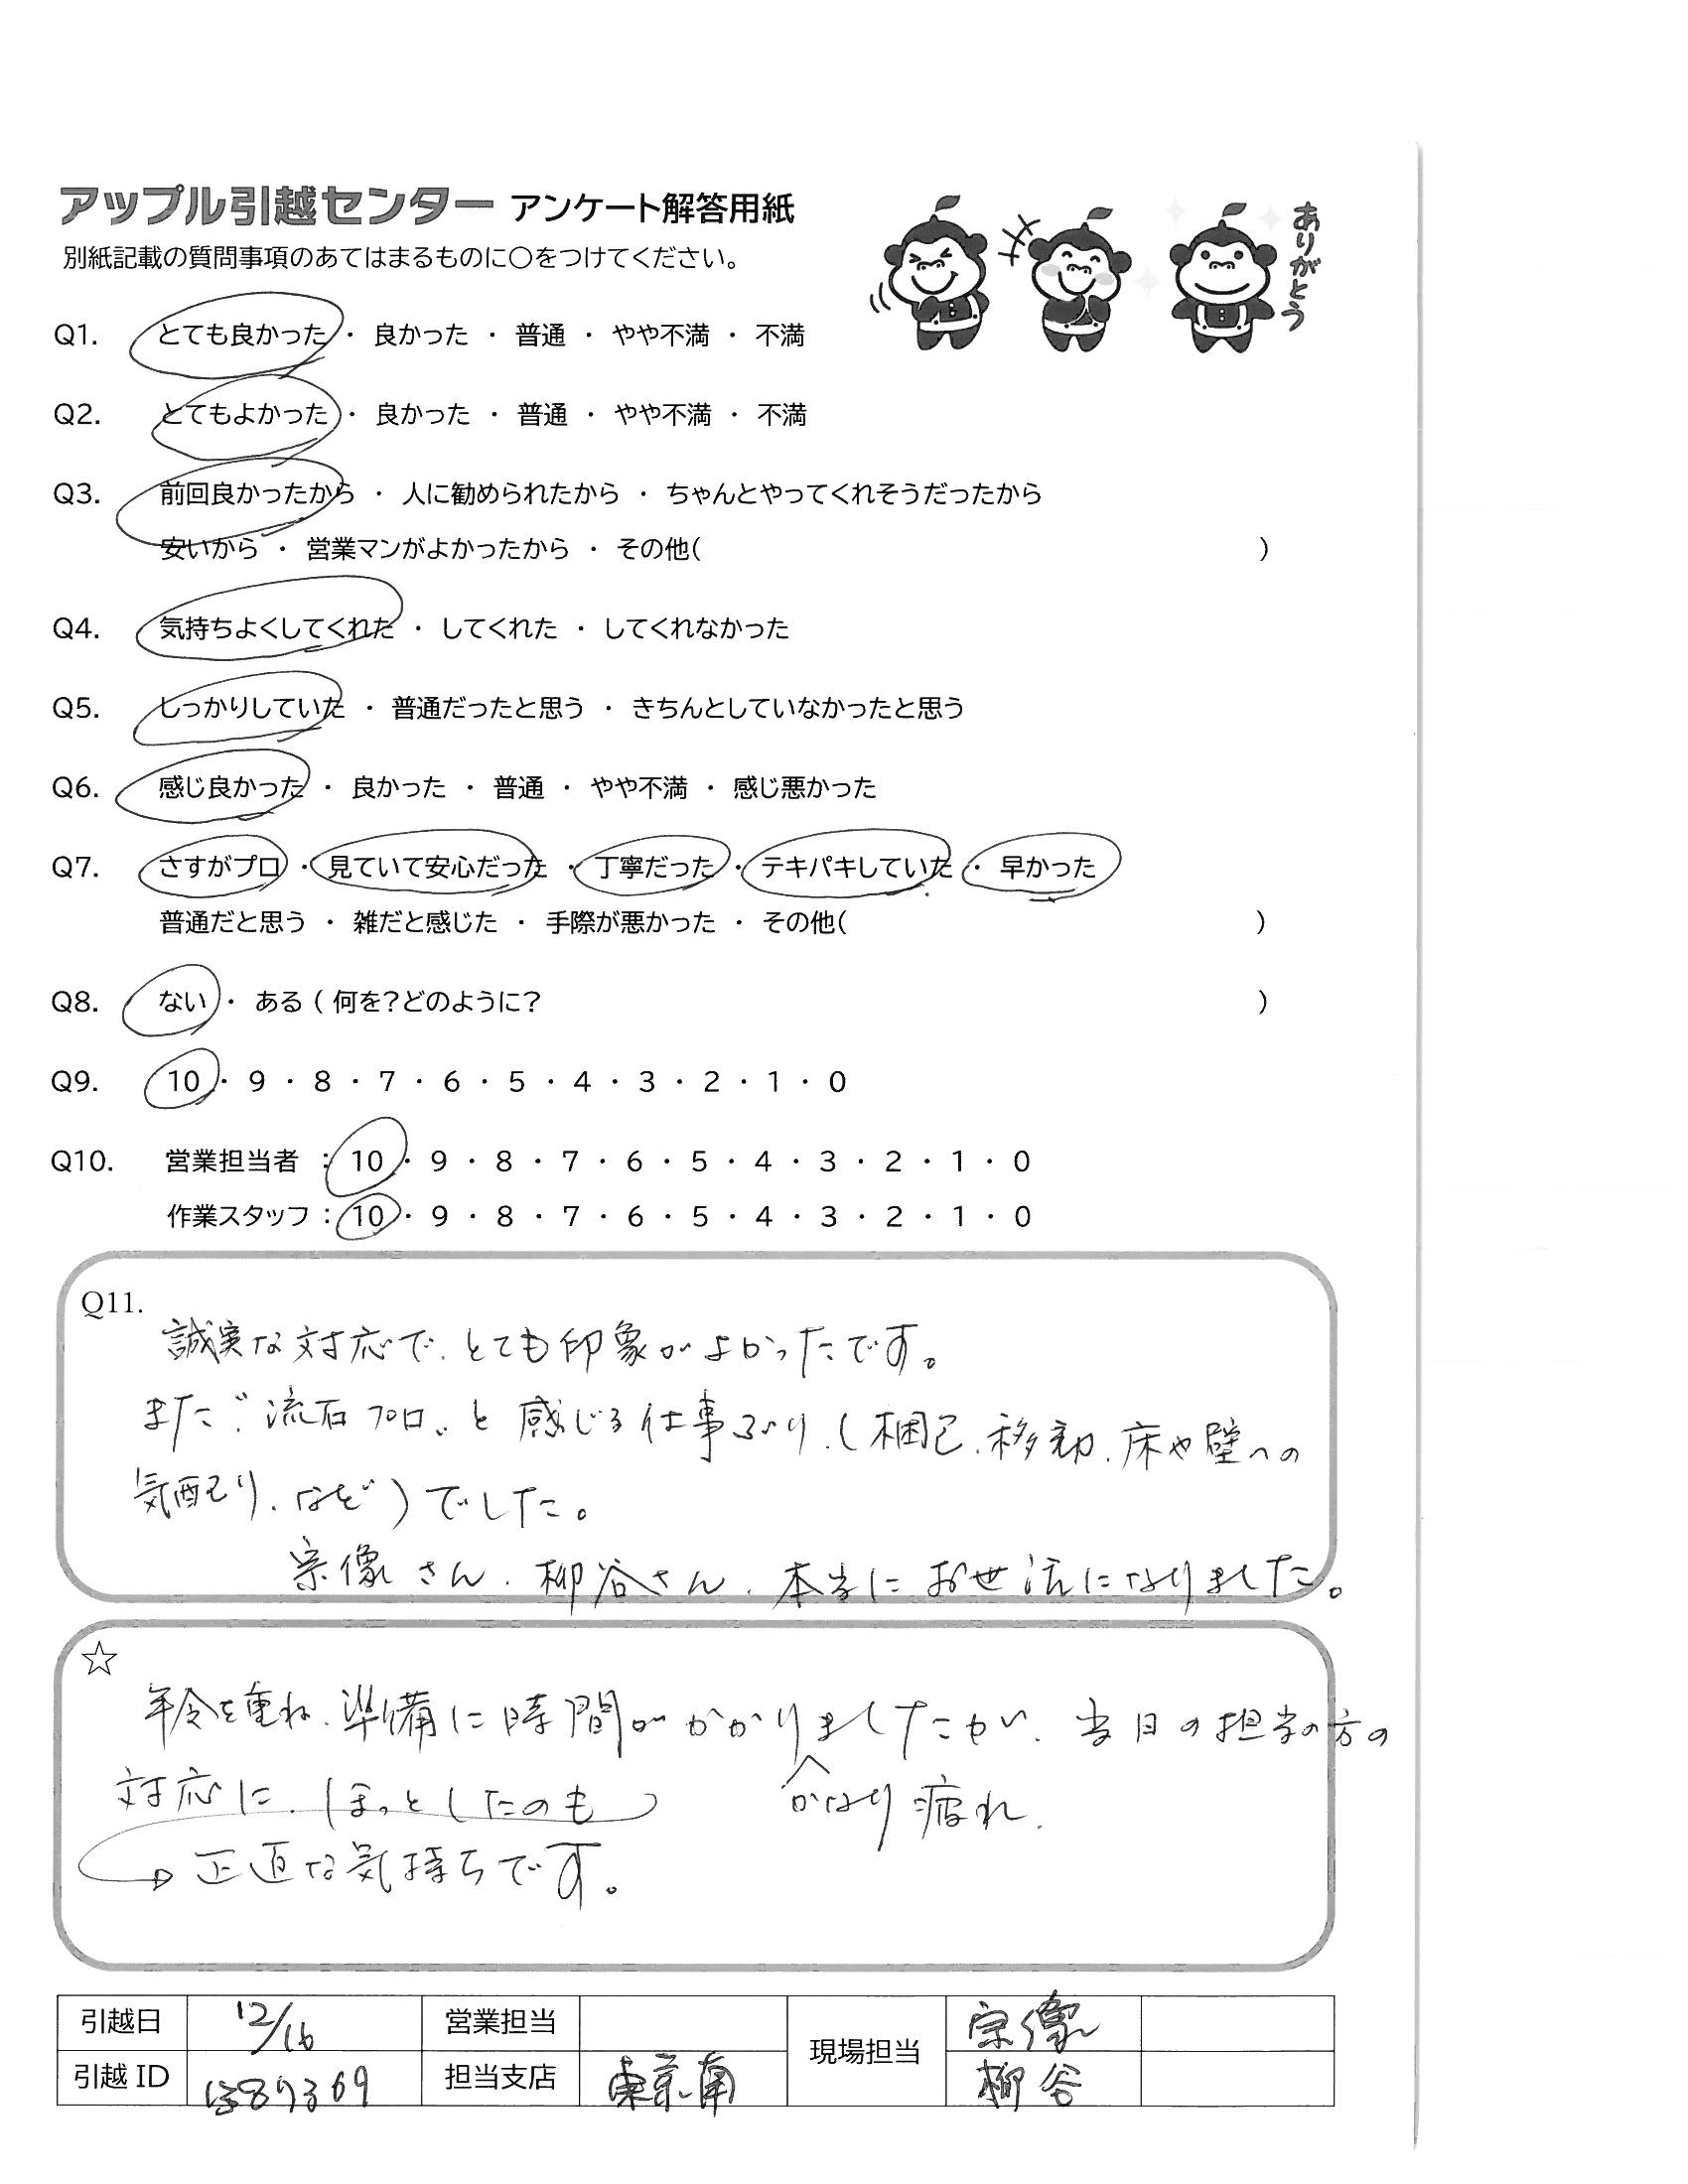 アップル引越センター アンケート解答用紙
別紙記載の質問事項のあてはまるものに〇をつけてください。
ありがとう
Q1. とても良かった ・ 良かった ・ 普通 ・ やや不満 ・ 不満
Q2. とてもよかった ・ 良かった ・ 普通 ・ やや不満 ・ 不満
Q3. 前回良かったから ・ 人に勧められたから ・ ちゃんとやってくれそうだったから
安いから ・ 営業マンがよかったから ・ その他( )
Q4. 気持ちよくしてくれた ・ してくれた ・ してくれなかった
Q5. しっかりしていた ・ 普通だったと思う ・ きちんとしていなかったと思う
Q6. 感じ良かった ・ 良かった ・ 普通 ・ やや不満 ・ 感じ悪かった
Q7. さすがプロ ・ 見ていて安心だった ・ 丁寧だった ・ テキパキしていた ・ 早かった
普通だと思う ・ 雑だと感じた ・ 手際が悪かった ・ その他( )
Q8. ない ・ ある ( 何を?どのように? )
Q9. 10 ・ 9 ・ 8 ・ 7 ・ 6 ・ 5 ・ 4 ・ 3 ・ 2 ・ 1 ・ 0
Q10. 営業担当者 : 10 ・ 9 ・ 8 ・ 7 ・ 6 ・ 5 ・ 4 ・ 3 ・ 2 ・ 1 ・ 0
作業スタッフ : 10 ・ 9 ・ 8 ・ 7 ・ 6 ・ 5 ・ 4 ・ 3 ・ 2 ・ 1 ・ 0
Q11.
誠実な対応で、とても印象がよかったです。
また〝流石プロ〟と感じる仕事ぶり、(梱包、移動、床や壁への
気配り、など)でした。
宗像さん、柳谷さん、本当にお世話になりました。
☆
年令を重ね、準備に時間がかかりましたが、当日の担当の方の
対応に、ほっとしたのも かなり疲れ、
正直な気持ちです。
引越日 12/16 営業担当 現場担当 宗像
引越 ID 担当支店 東京南 柳谷